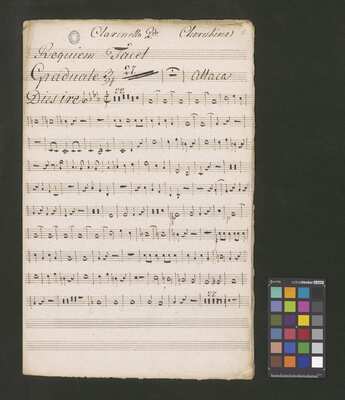 Clarinetto 2do Cherubini
Requiem Tacet
Graduale 27 Attaca
Dies ire 22
22